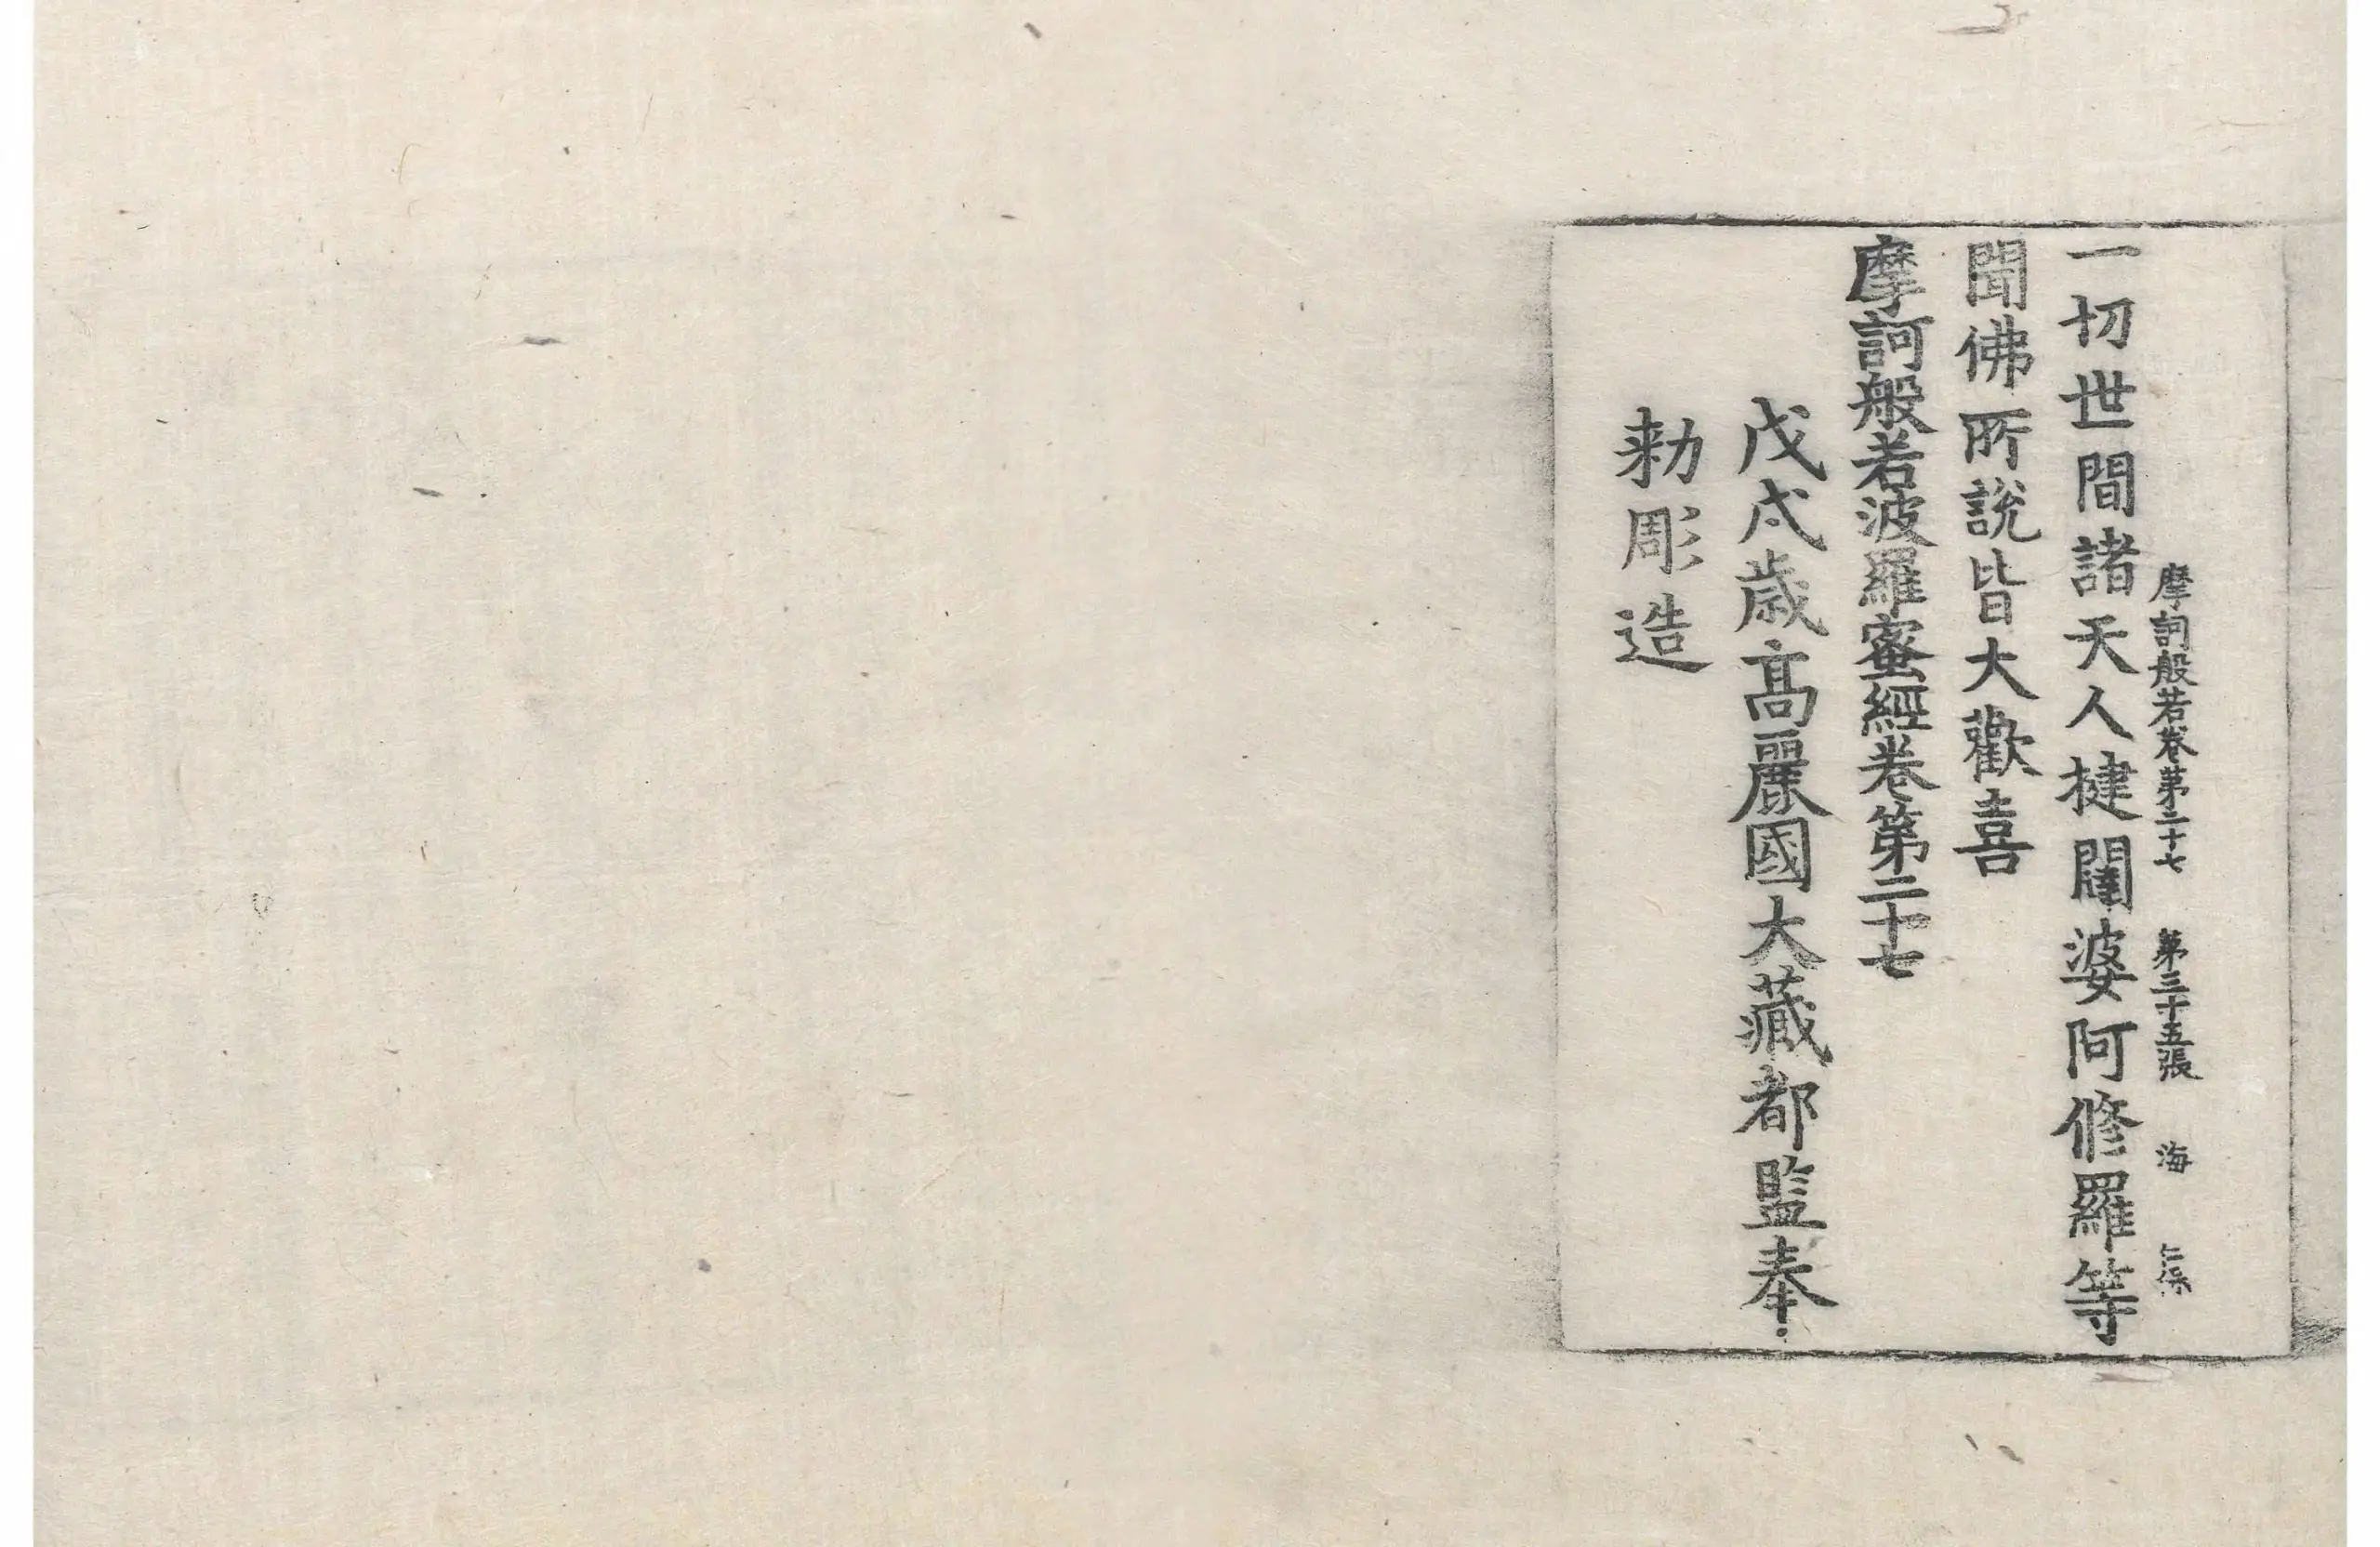 摩訶般若卷第二十七 第三十五張 海 仁保
一切世間諸天人揵闥婆阿修羅等
聞佛所說皆大歡喜
摩訶般若波羅蜜經卷第二十七
戊戌歲高麗國大藏都監奉
勅彫造